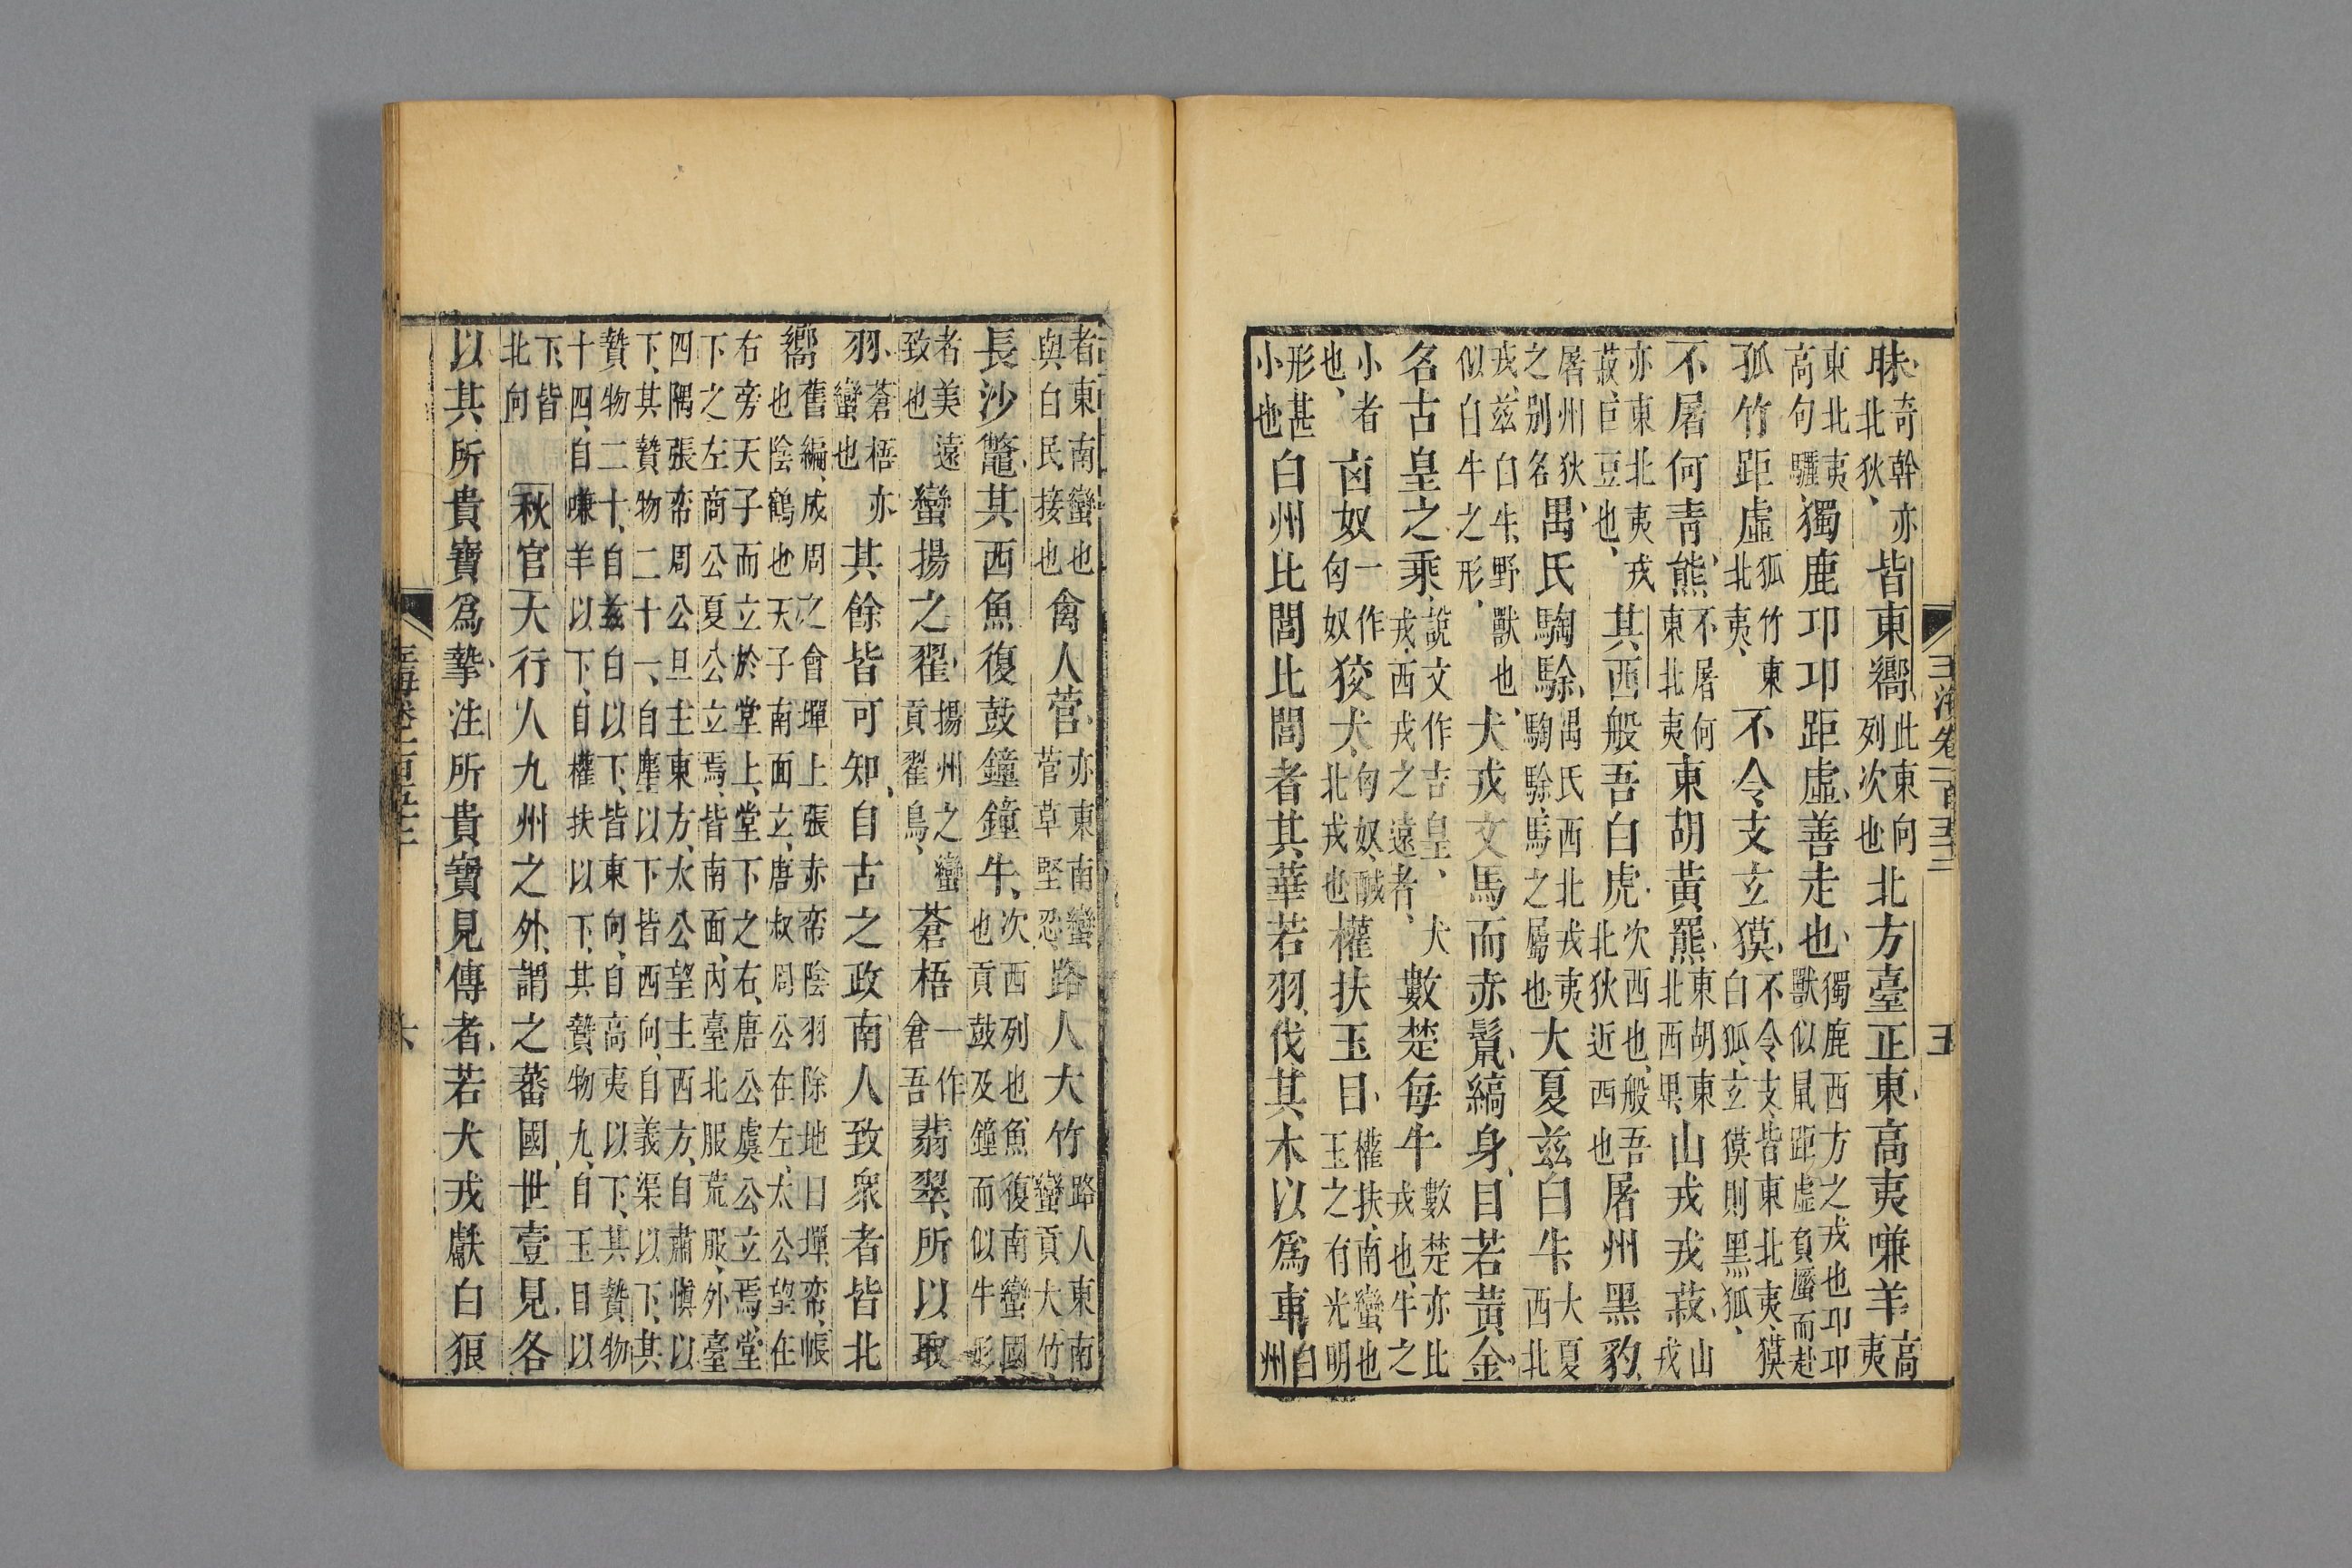 玉海卷一百五十二　五
昧奇幹亦北狄皆東嚮此東向列次也北方臺正東高夷嗛羊高夷
東北夷高句驪獨鹿卭卭距虛善走也獨鹿西方之戎也卭卭獸似鼠距虛負蟨而赴
孤竹距虛孤竹東北夷不令支玄獏不令支皆東北夷獏白狐玄獏則黑狐
不屠何青熊不屠何東北夷東胡黃羆東胡東北西卑山戎戎菽山戎
亦東北夷戎菽巨豆也其西般吾白虎次西也般吾北狄近西也屠州黑豹
屠州狄之別名禺氏騊駼禺氏西北戎夷騊駼馬之屬也大夏兹白牛大夏西北
戎兹白牛野獸也似白牛之形犬戎文馬而赤鬣縞身目若黃金
名古皇之乘說文作吉皇犬戎西戎之遠者數楚每牛數楚亦北戎也牛之
小者也匈奴一作匈奴狡犬匈奴醎北戎也權扶玉目權扶南蠻也玉之有光明
形甚小也白州比閭比閭者其華若羽伐其木以爲車白州
者東南蠻也與白民接也禽人菅亦東南蠻菅草堅忍路人大竹路人東南蠻貢大竹
長沙鼈其西魚復鼓鐘鐘牛次西列也魚復南蠻國也貢鼓及鐘而似牛形
者美遠致也蠻揚之翟揚州之蠻貢翟鳥蒼梧一作倉吾翡翠所以取
羽蒼梧亦蠻也其餘皆可知自古之政南人致衆者皆北
嚮舊編成周之會墠上張赤帟陰羽除地曰墠帟帳也陰鶴也天子南面立唐叔周公在左太公望在
右旁天子而立於堂上堂下之右唐公虞公立焉堂下之左商公夏公立焉皆南面內臺北服荒服外臺
四隅張帟周公旦主東方太公望主西方自肅愼以下其贄物二十一自麈以下皆西向自義渠以下其
贄物二十自兹白以下皆東向自高夷以下其贄物十四自嗛羊以下自權扶以下其贄物九自玉目以
下皆北向秋官大行人九州之外謂之蕃國世壹見各
以其所貴寶爲摯注所貴寶見傳者若犬戎獻白狼